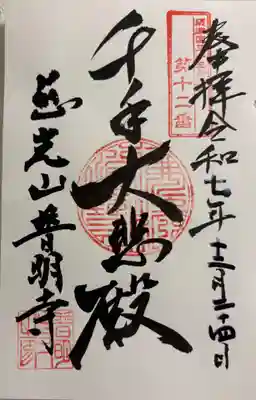 奉拝令和七年十二月二十四日
第十二番
千手大悲殿
慈光山普明寺